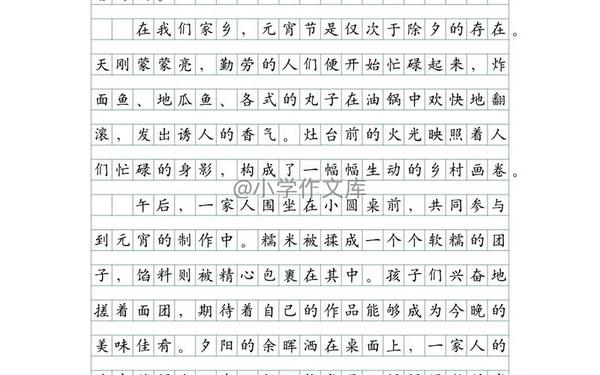 在我们家乡，元宵节是仅次于除夕的存在。
天刚蒙蒙亮，勤劳的人们便开始忙碌起来，炸
面鱼、地瓜鱼、各式的丸子在油锅中欢快地翻
滚，发出诱人的香气。灶台前的火光映照着人
们忙碌的身影，构成了一幅幅生动的乡村画卷。
@小学作文库
午后，一家人围坐在小圆桌前，共同参与
到元宵的制作中。糯米被揉成一个个软糯的团
子，馅料则被精心包裹在其中。孩子们兴奋地
搓着面团，期待着自己的作品能够成为今晚的
美味佳肴。夕阳的余晖洒在桌面上，一家人的